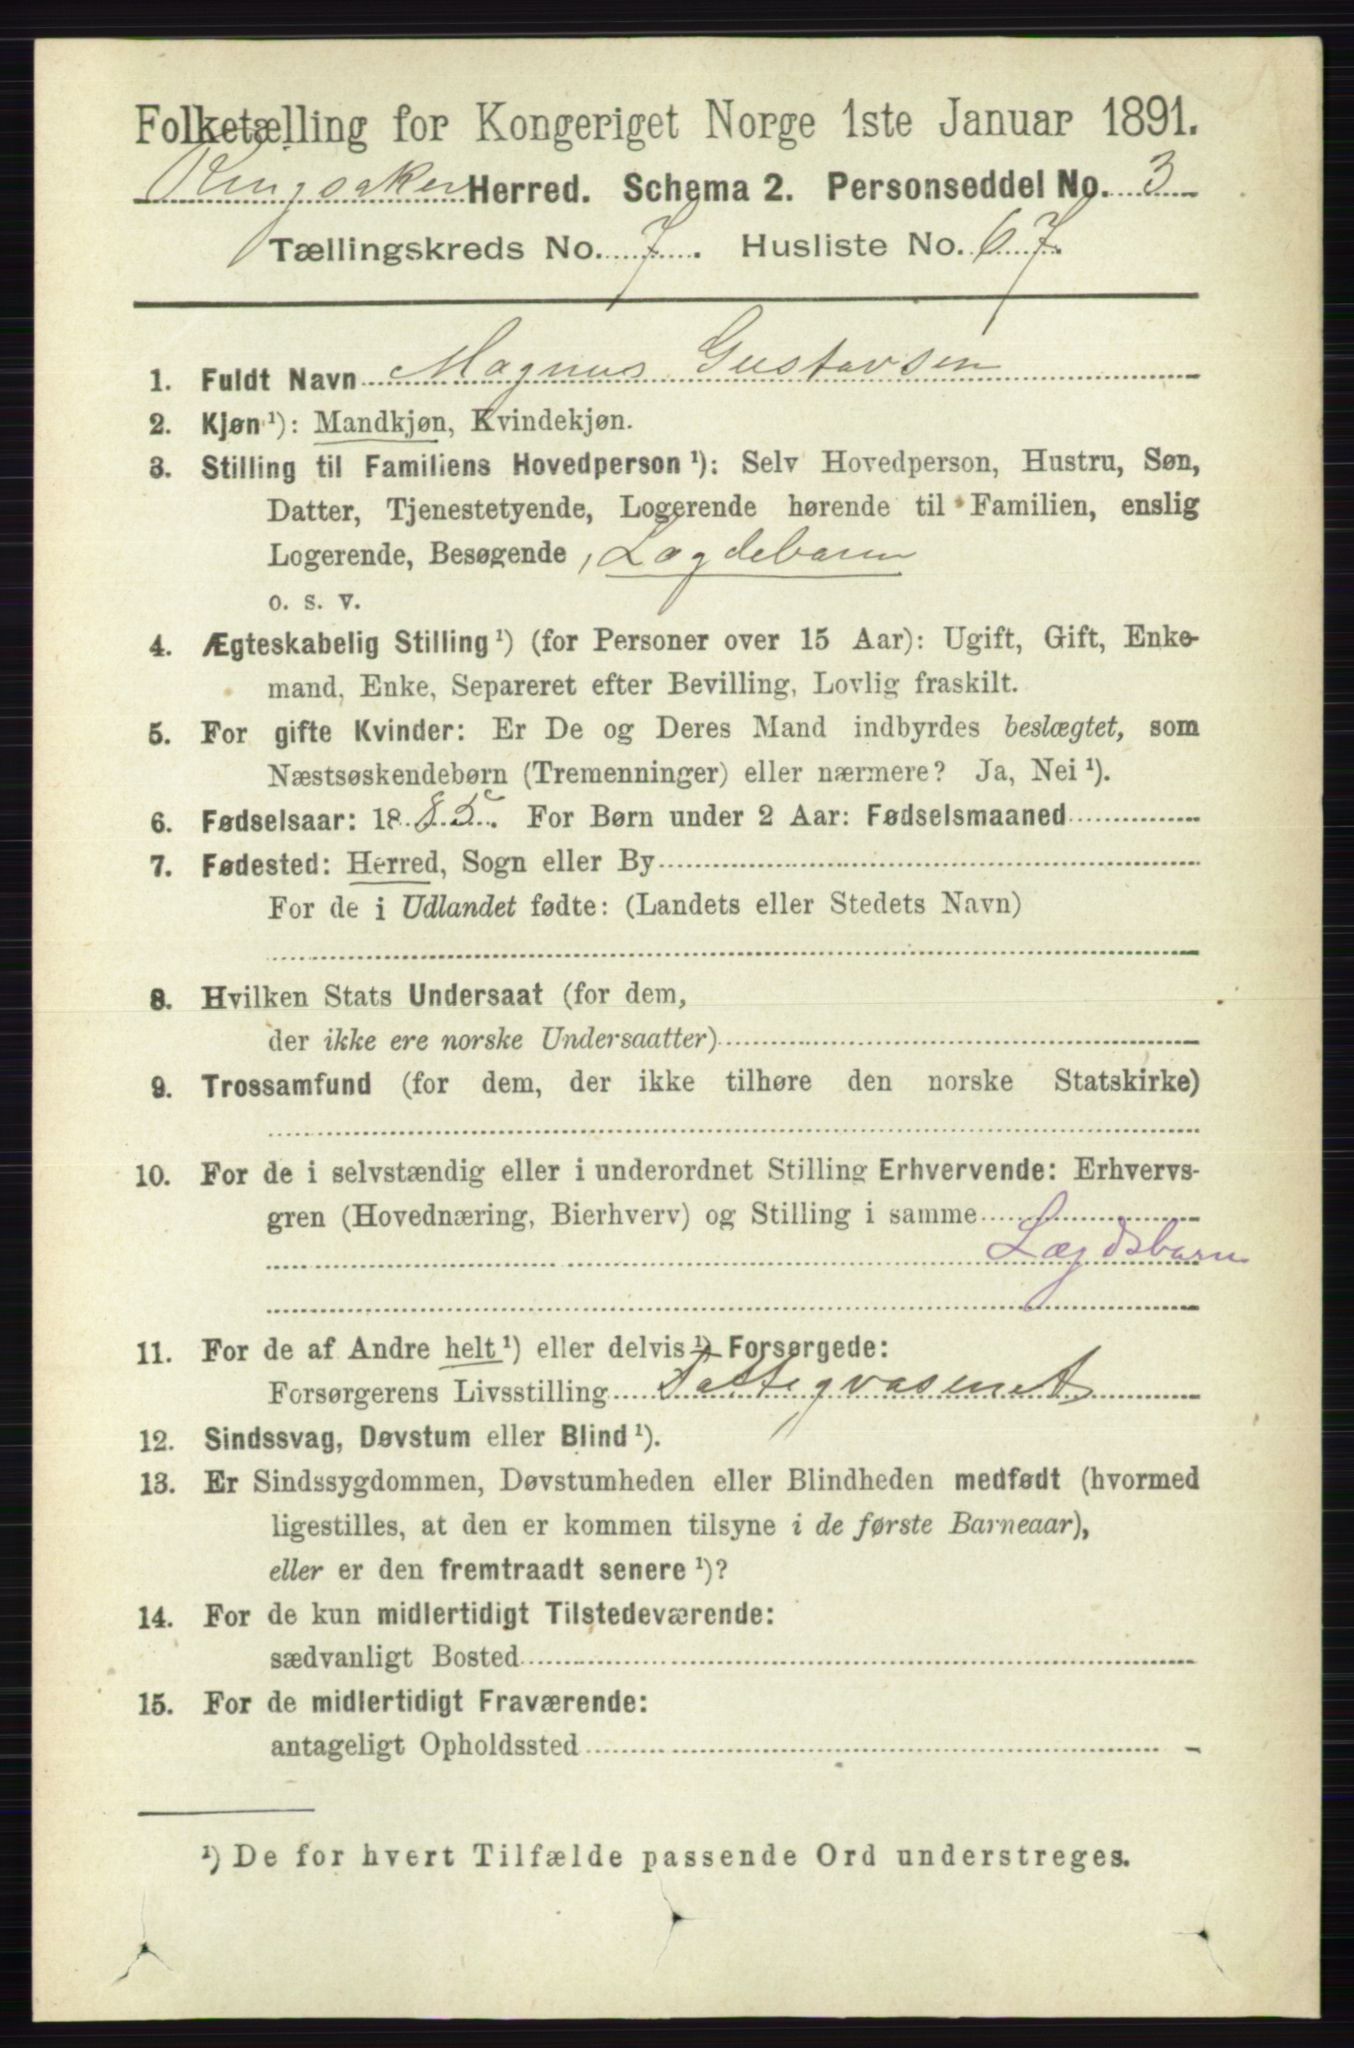 Folketælling for Kongeriget Norge 1ste Januar 1891.
Ringsaker Herred. Schema 2. Personseddel No. 3
Tællingskreds No. 7. Husliste No. 67.
1. Fuldt Navn Magnus Gustavsen
2. Kjøn ¹): Mandkjøn, Kvindekjøn.
3. Stilling til Familiens Hovedperson ¹): Selv Hovedperson, Hustru, Søn,
Datter, Tjenestetyende, Logerende hørende til Familien, enslig
Logerende, Besøgende, Lægdebarn
o. s. v.
4. Ægteskabelig Stilling ¹) (for Personer over 15 Aar): Ugift, Gift, Enke-
mand, Enke, Separeret efter Bevilling, Lovlig fraskilt.
5. For gifte Kvinder: Er De og Deres Mand indbyrdes beslægtet, som
Næstsøskendebørn (Tremenninger) eller nærmere? Ja, Nei ¹).
6. Fødselsaar: 1885. For Børn under 2 Aar: Fødselsmaaned
7. Fødested: Herred, Sogn eller By
For de i Udlandet fødte: (Landets eller Stedets Navn)
8. Hvilken Stats Undersaat (for dem,
der ikke ere norske Undersaatter)
9. Trossamfund (for dem, der ikke tilhøre den norske Statskirke)
10. For de i selvstændig eller i underordnet Stilling Erhvervende: Erhvervs-
gren (Hovednæring, Bierhverv) og Stilling i samme
Lægdsbarn
11. For de af Andre helt ¹) eller delvis ¹) Forsørgede:
Forsørgerens Livsstilling Fattigvæsenet
12. Sindssvag, Døvstum eller Blind ¹).
13. Er Sindssygdommen, Døvstumheden eller Blindheden medfødt (hvormed
ligestilles, at den er kommen tilsyne i de første Barneaar),
eller er den fremtraadt senere ¹)?
14. For de kun midlertidigt Tilstedeværende:
sædvanligt Bosted
15. For de midlertidigt Fraværende:
antageligt Opholdssted
¹) De for hvert Tilfælde passende Ord understreges.